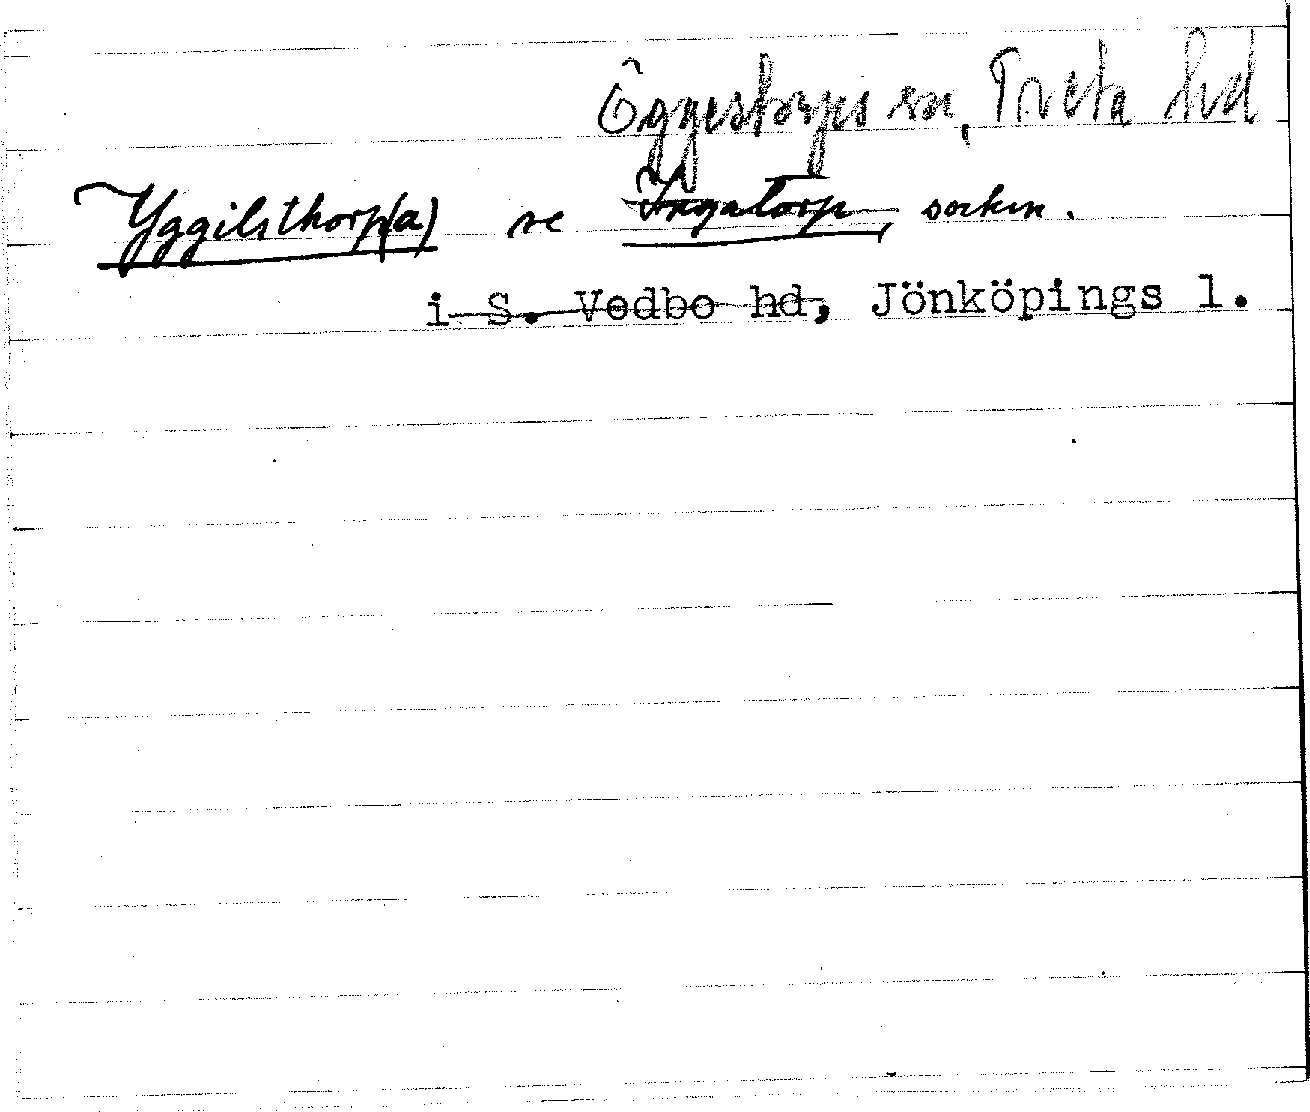 Öggestorps sn, Tveta hd
Yggilsthorp(a) se Ingatorp, socken.
i S. Vedbo hd, Jönköpings l.